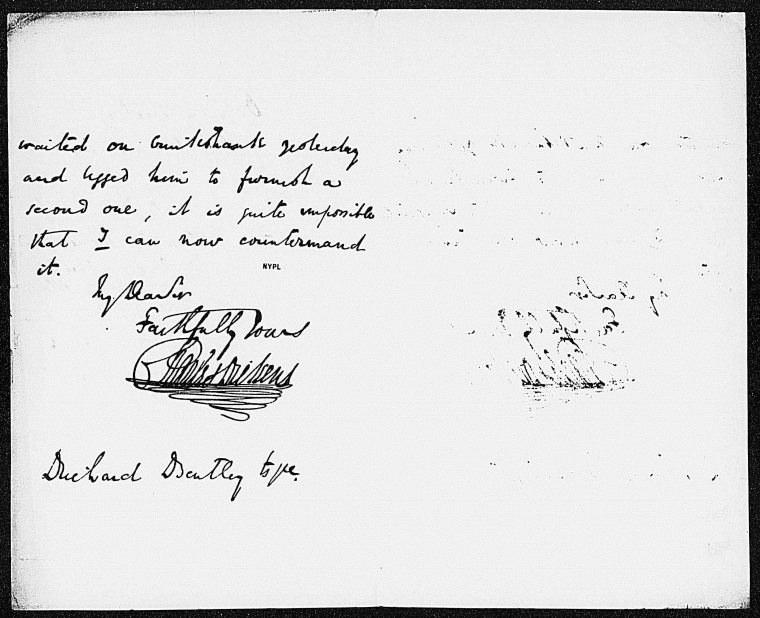 waited on Cruikshank yesterday
and begged him to furnish a
second one, it is quite impossible
that I can now countermand
it.
NYPL
My Dear Sir
Faithfully Yours
Charles Dickens
Richard Bentley Esqre.